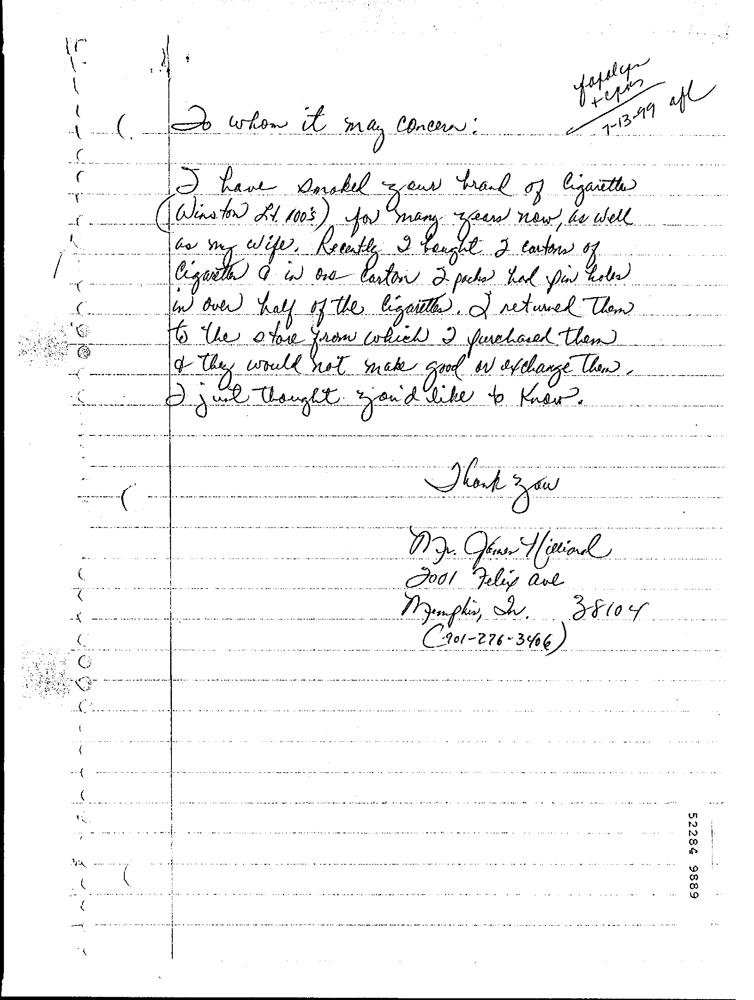 7-13-99
To whom it may concern:
I have smoked your brand of Cigarettes
(Winston Lt. 100's) for many years now, as well
as my wife. Recently I bought 2 cartons of
Cigarettes & in one Carton 2 packs had pin holes
in over half of the Cigarettes. I returned them
to the store from which I purchased them
& they would not make good or exchange them.
I just thought you'd like to know.
Thank you
Mr. James Hilliard
2001 Felix ave
Memphis, Tn. 38104
(901-276-3406)
52284 9889